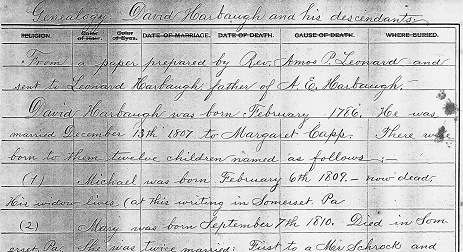 Genealogy David Harbaugh and his descendants.
RELIGION. Color of Hair. Color of Eyes. DATE OF MARRIAGE. DATE OF DEATH. CAUSE OF DEATH. WHERE BURIED.
From a paper prepared by Rev. Amos P. Leonard and
sent to Leonard Harbaugh father of A. E. Harbaugh.-
David Harbaugh was born February 1786. He was
married December 13th 1807 to Margaret Capp. There were
born to them twelve children named as follows :-
(1) Michael was born February 6th 1809. - now dead.
His widow lives (at this writing in Somerset. Pa
(2) Mary was born September 7th 1810. Died in Som
erset, Pa. She was twice married: First to a Mr Schrock and